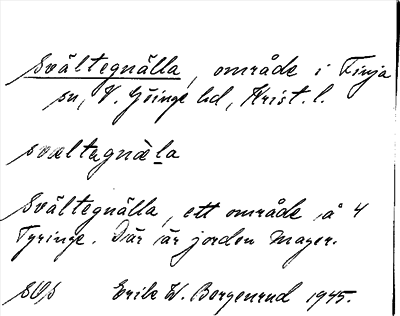 Svältegnälla, område i Finja
sn, V. Göinge hd, Krist. l.
svältagnäla
Svältegnälla, ett område å 4
Tyringe. Där är jorden mager.
SOS Erik W. Borgenrud 1945.